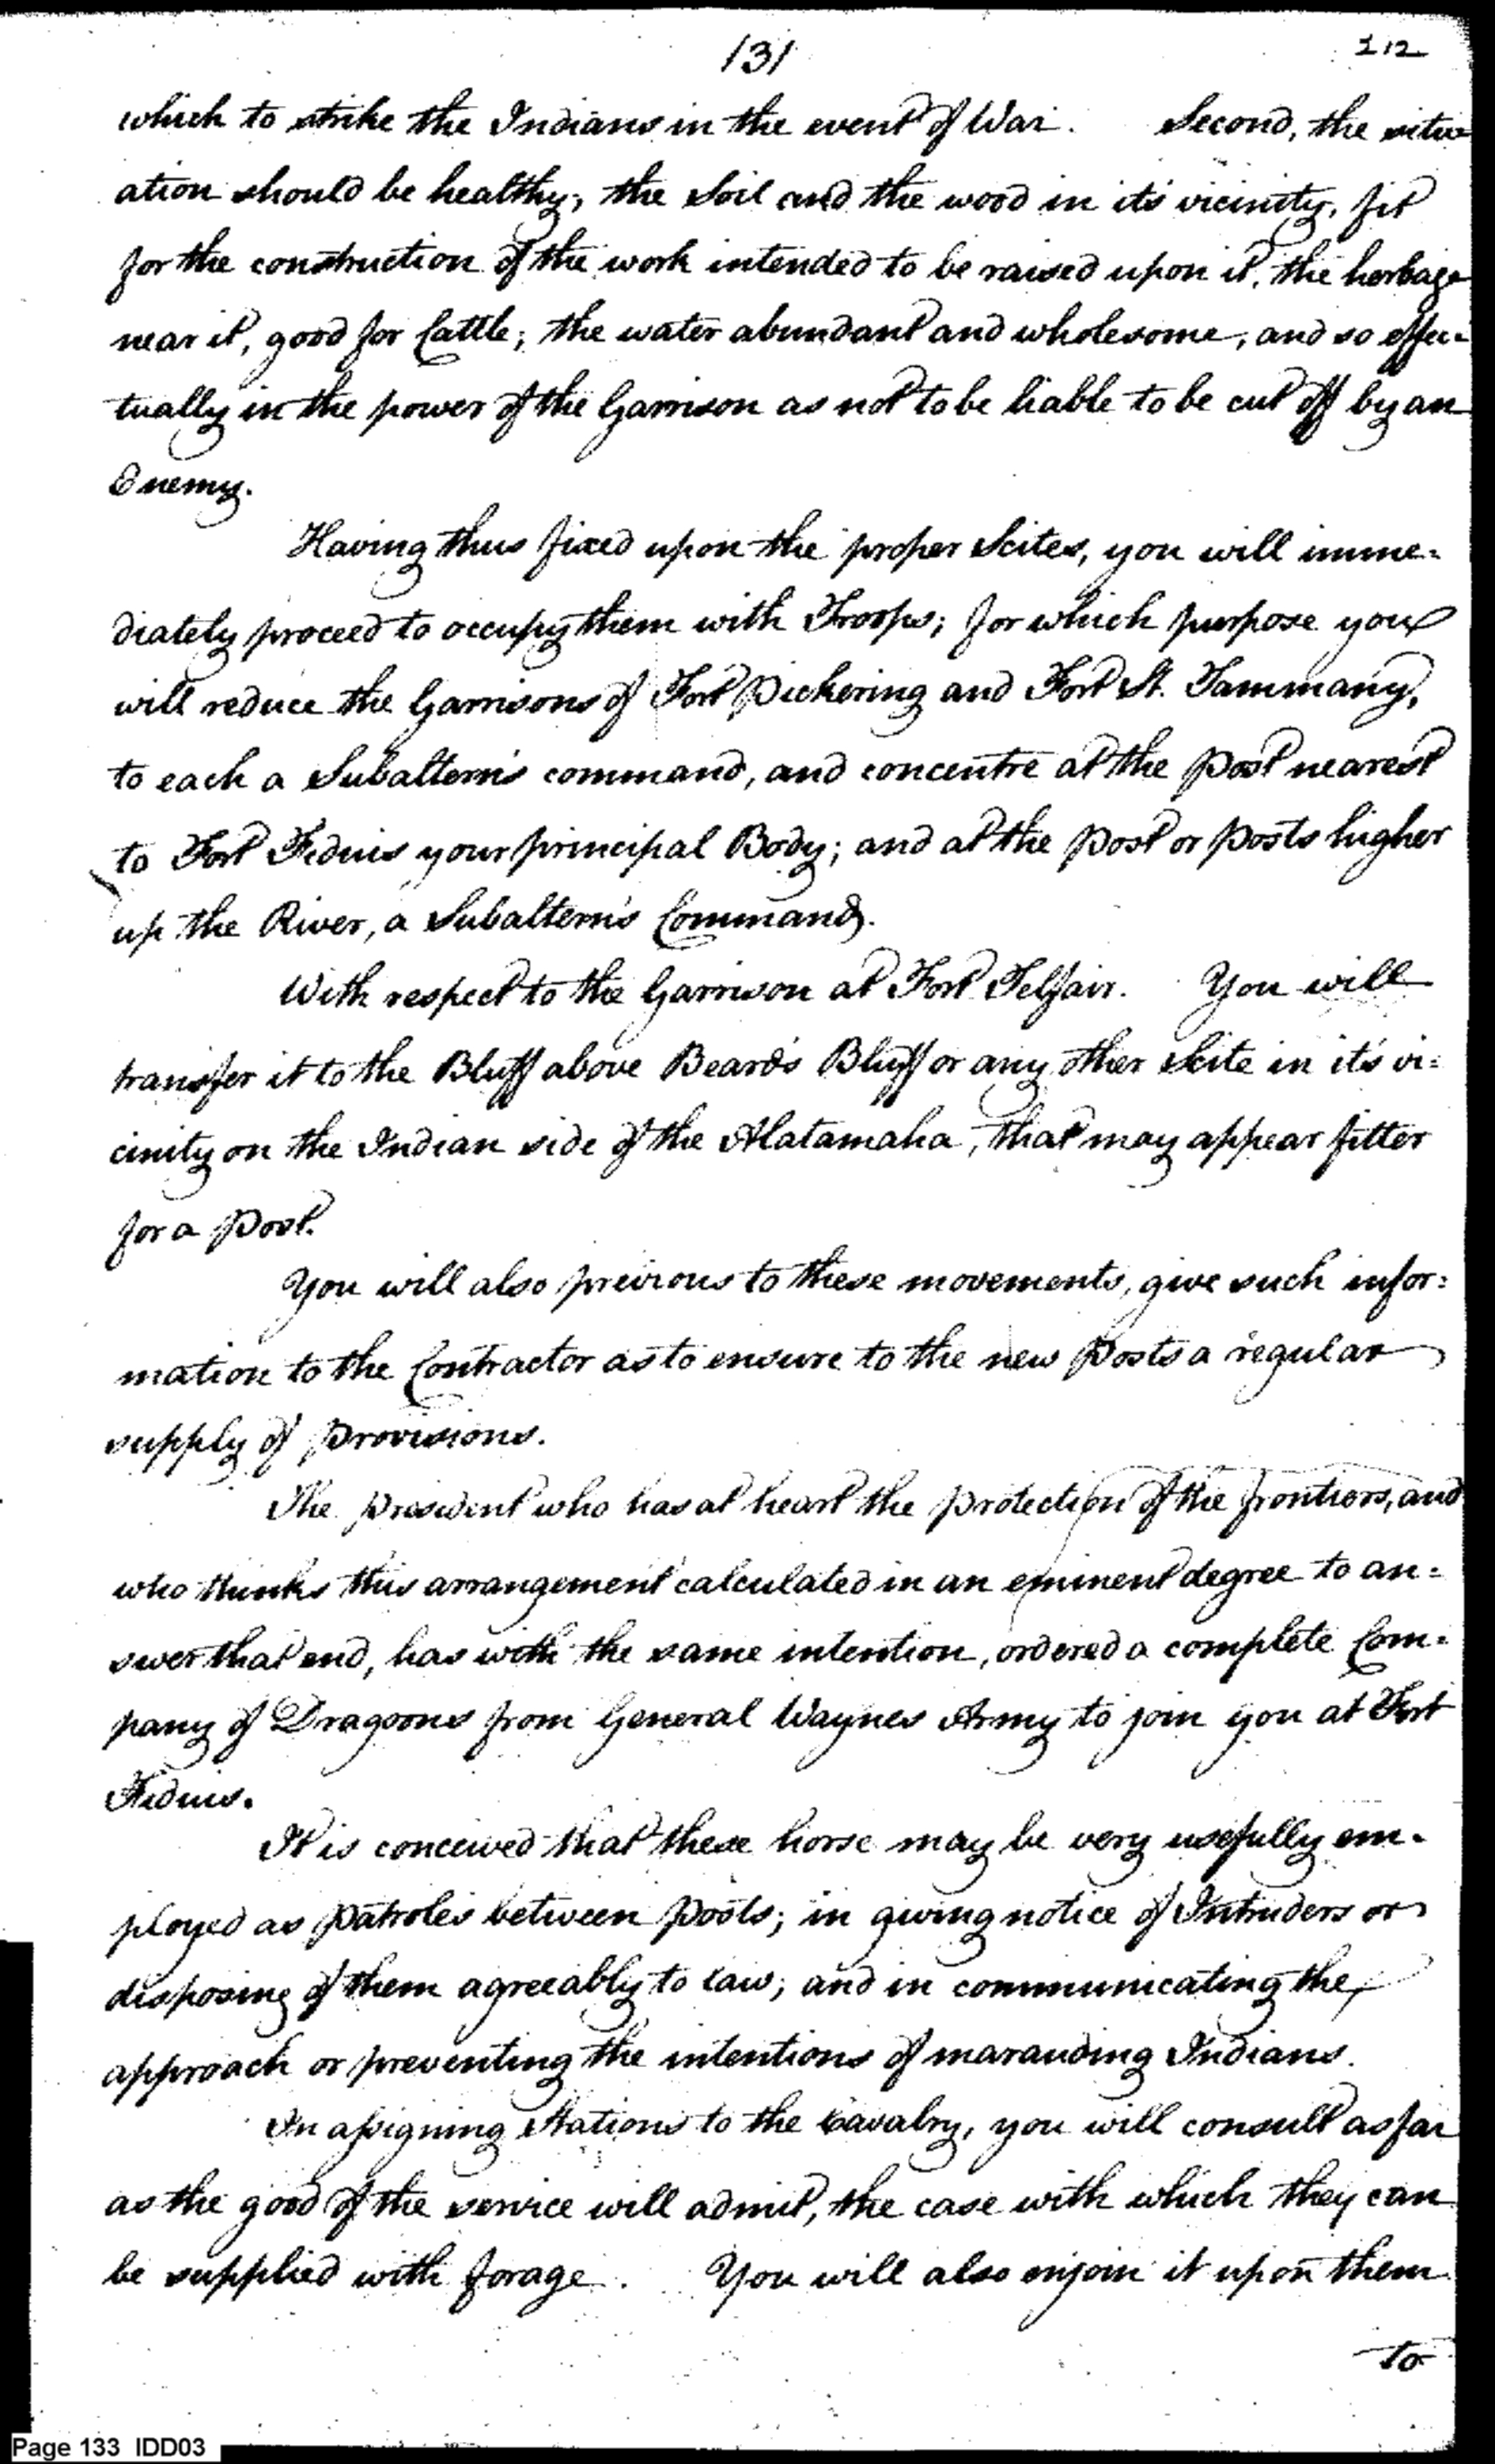 131
112
which to strike the Indians in the event of War. Second, the situ
ation should be healthy; the Soil and the wood in it's vicinity, fit
for the construction of the work intended to be raised upon it, the herbage
near it, good for Cattle; the water abundant and wholesome, and so effec=
tually in the power of the Garrison as not to be liable to be cut off by an
Enemy.
Having thus fixed upon the proper Scites, you will imme=
diately proceed to occupy them with Troops; for which purpose you
will reduce the Garrisons of Fort Pickering and Fort St. Tammany,
to each a Subaltern's command, and concentre at the Post nearest
to Fort Fidius your principal Body; and at the Post or Posts higher
up the River, a Subaltern's Command.
With respect to the Garrison at Fort Telfair. You will
transfer it to the Bluff above Beard's Bluff or any other Scite in it's vi=
cinity on the Indian side of the Alatamaha, that may appear fitter
for a Post.
You will also previous to these movements, give such infor=
mation to the Contractor as to ensure to the new Posts a regular
supply of Provisions.
The President who has at heart the Protection of the frontiers, and
who thinks this arrangement calculated in an eminent degree to an=
swer that end, has with the same intention, ordered a complete Com=
pany of Dragoons from General Waynes Army to join you at Fort
Fidius.
It is conceived that these horse may be very usefully em=
ployed as Patroles between Posts; in giving notice of Intruders or
disposing of them agreeably to Law; and in communicating the
approach or preventing the intentions of marauding Indians.
In assigning Stations to the Cavalry, you will consult as far
as the good of the service will admit, the ease with which they can
be supplied with forage. You will also enjoin it upon them
to
Page 133 IDD03